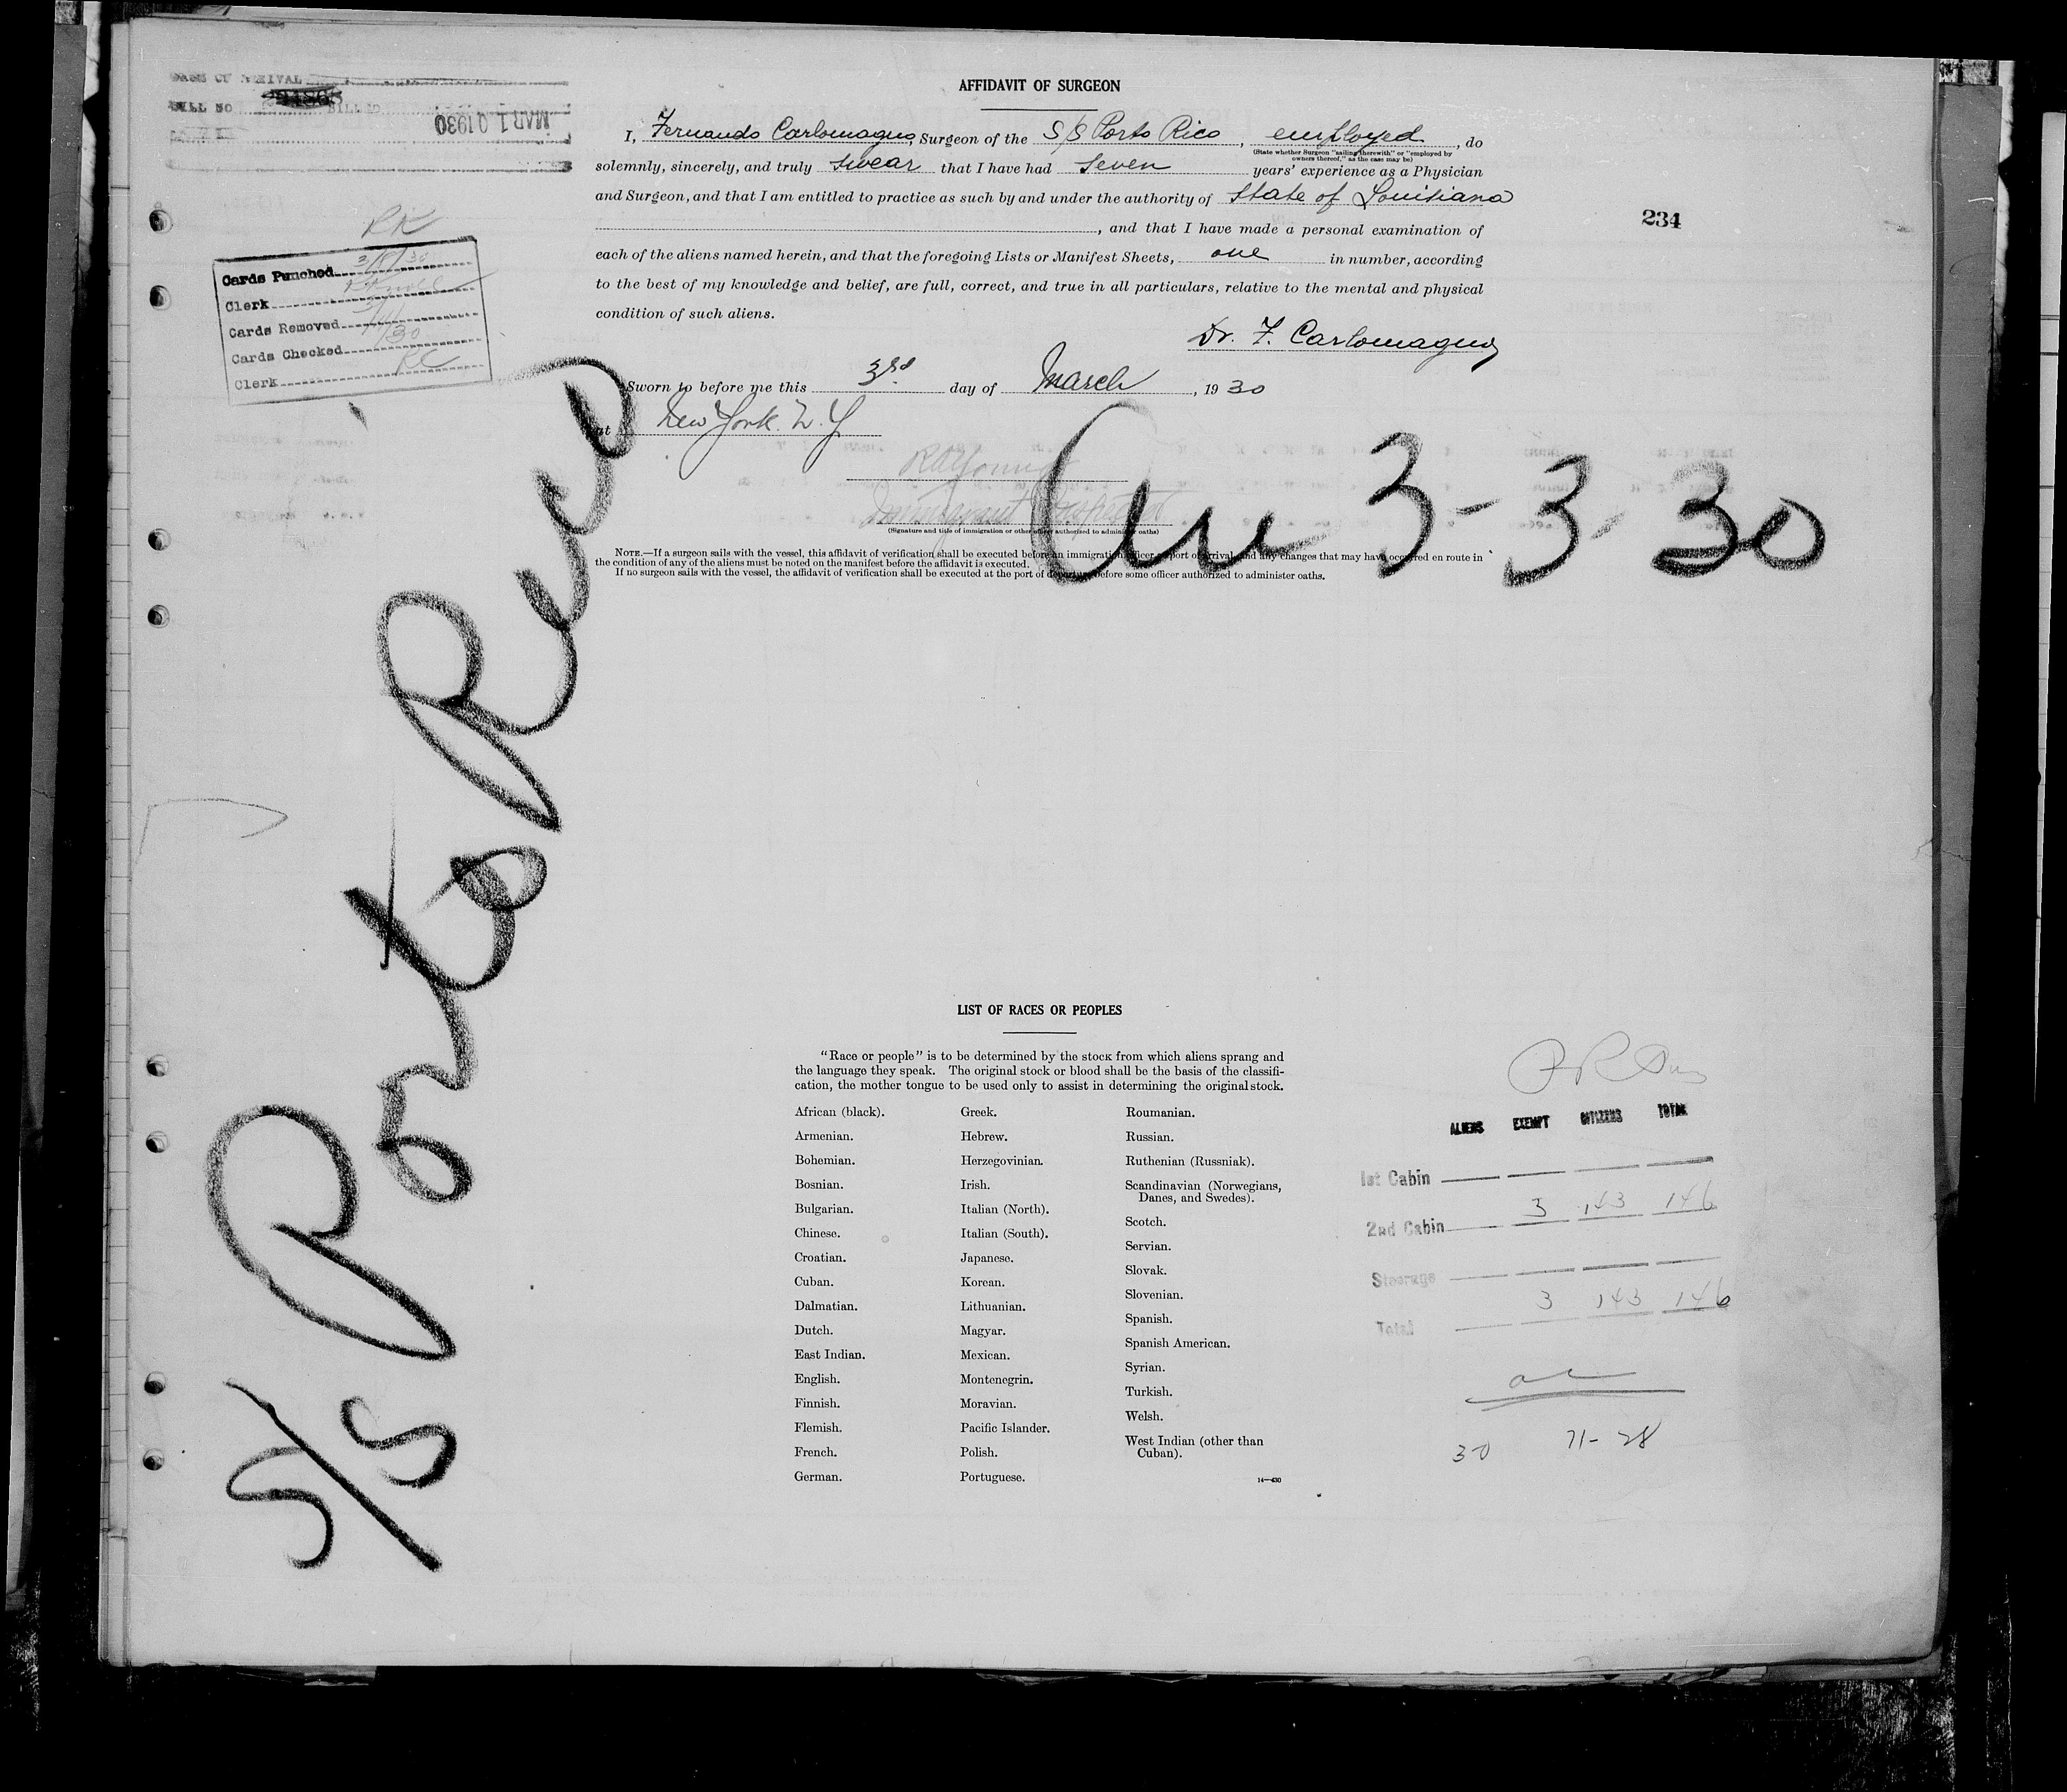 BILL NO BILLED
MAR 10 1930
AFFIDAVIT OF SURGEON
I, Fernando Carlomagno, Surgeon of the S/S Porto Rico, employed, do
(State whether Surgeon "sailing therewith" or "employed by
owners thereof," as the case may be)
solemnly, sincerely, and truly swear that I have had seven years' experience as a Physician
and Surgeon, and that I am entitled to practice as such by and under the authority of State of Louisiana
, and that I have made a personal examination of
each of the aliens named herein, and that the foregoing Lists or Manifest Sheets, one in number, according
to the best of my knowledge and belief, are full, correct, and true in all particulars, relative to the mental and physical
condition of such aliens.
Dr. F. Carlomagno
Sworn to before me this 3rd day of March, 1930
at New York. N.Y
Immigrant Inspector
(Signature and title of immigration or other officer authorized to administer oaths)
NOTE.—If a surgeon sails with the vessel, this affidavit of verification shall be executed before an immigration officer at port of arrival, and any changes that may have occurred en route in
the condition of any of the aliens must be noted on the manifest before the affidavit is executed.
If no surgeon sails with the vessel, the affidavit of verification shall be executed at the port of departure before some officer authorized to administer oaths.
234
RK
Cards Punched 3/8/30
Clerk
Cards Removed
Cards Checked
Clerk
Arr 3-3-30
S/S Porto Rico
LIST OF RACES OR PEOPLES
"Race or people" is to be determined by the stock from which aliens sprang and
the language they speak. The original stock or blood shall be the basis of the classifi-
cation, the mother tongue to be used only to assist in determining the original stock.
African (black).
Armenian.
Bohemian.
Bosnian.
Bulgarian.
Chinese.
Croatian.
Cuban.
Dalmatian.
Dutch.
East Indian.
English.
Finnish.
Flemish.
French.
German.
Greek.
Hebrew.
Herzegovinian.
Irish.
Italian (North).
Italian (South).
Japanese.
Korean.
Lithuanian.
Magyar.
Mexican.
Montenegrin.
Moravian.
Pacific Islander.
Polish.
Portuguese.
Roumanian.
Russian.
Ruthenian (Russniak).
Scandinavian (Norwegians,
Danes, and Swedes).
Scotch.
Servian.
Slovak.
Slovenian.
Spanish.
Spanish American.
Syrian.
Turkish.
Welsh.
West Indian (other than
Cuban).
14—430
ALIENS EXEMPT CITIZENS TOTAL
1st Cabin
2nd Cabin 3 143 146
Steerage
Total 3 143 146
30 71-28